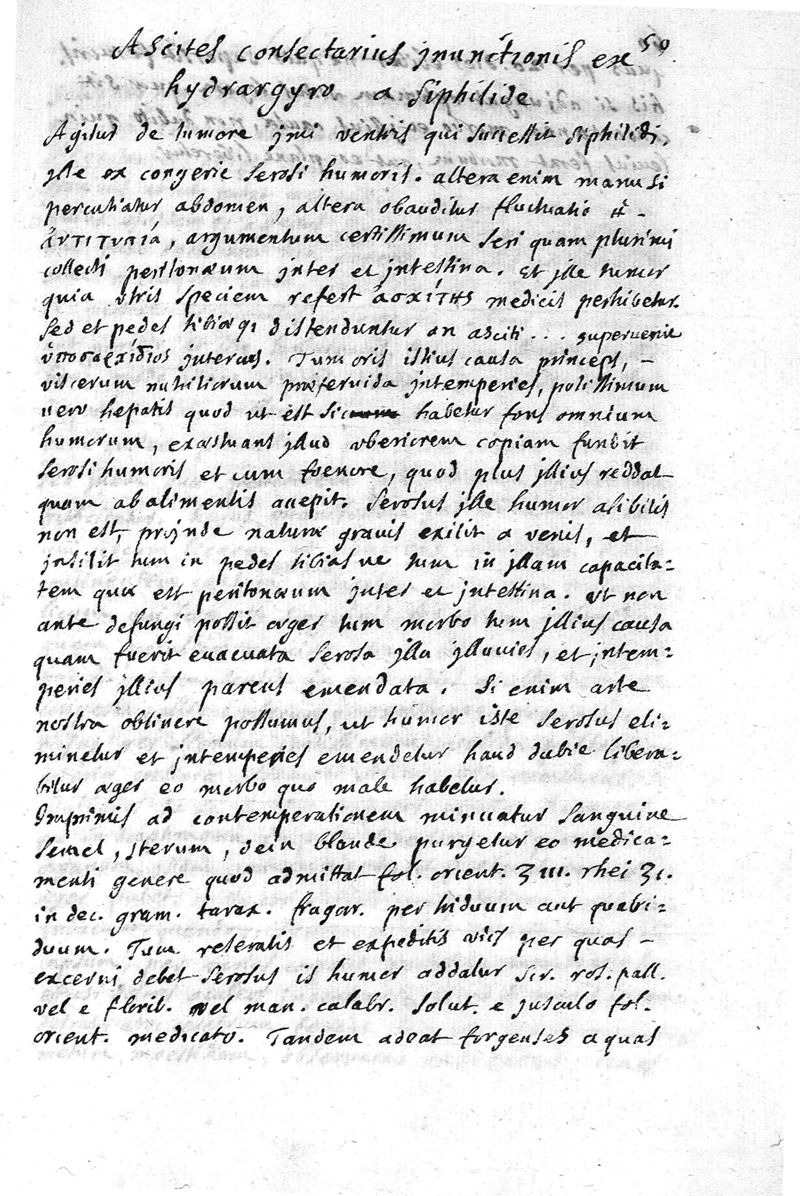 50
Ascites consectarius jnunctionis ex
hydrargyro a Siphilide
Agitur de tumore jmi ventris qui successit Siphilidi,
jlle ex congerie serosi humoris. altera enim manu si
percutiatur abdomen, altera obauditur fluctuatio
ἀντιτυπία, argumentum certissimum seri quam plurimi
collecti peritonæum jnter et jntestina. Et jlle tumor
quia utris speciem refert ἀσκίτης medicis perhibetur.
Sed et pedes tibiæqȝ distenduntur an asciti . . . supervenit
jntercus. Tumoris istius causa princeps, –
viscerum nutritiorum præfervida jntemperies, potissimum
vero hepatis quod ut est sic habetur fons omnium
humorum, exæstuans jllud uberiorem copiam fundit
serosi humoris et cum foenore, quod plus jllius reddat
quam ab alimentis accepit. Serosus jlle humor alibilis
non est, projnde naturæ gravis exilit a venis, et
jnsilit tum in pedes tibias ve tum in jllam capacita=
tem quæ est peritonæum jnter et jntestina. ut non
ante defungi possit æger tum morbo tum jllius causa
quam fuerit evacuata serosa jlla jlluvies, et jntem=
peries jllius parens emendata. Si enim arte
nostra obtinere possumus, ut humor iste serosus eli=
minetur et jntemperies emendetur haud dubie libera=
bitur æger eo morbo quo male habetur.
Imprimis ad contemperationem minuatur sanguine
semel, iterum, dein blande purgetur eo medica=
menti genere quod admittat fol. orient. ʒ iii. rhei ʒi.
in dec. gram. tarax. fragar. per biduum aut quatri=
duum. Tum reseratis et expeditis viis per quas –
excerni debet serosus is humor addatur sir. ros. pall.
vel e florib. vel man. calabr. solut. e jusculo fol.
orient. medicato. Tandem adeat forgenses aquas